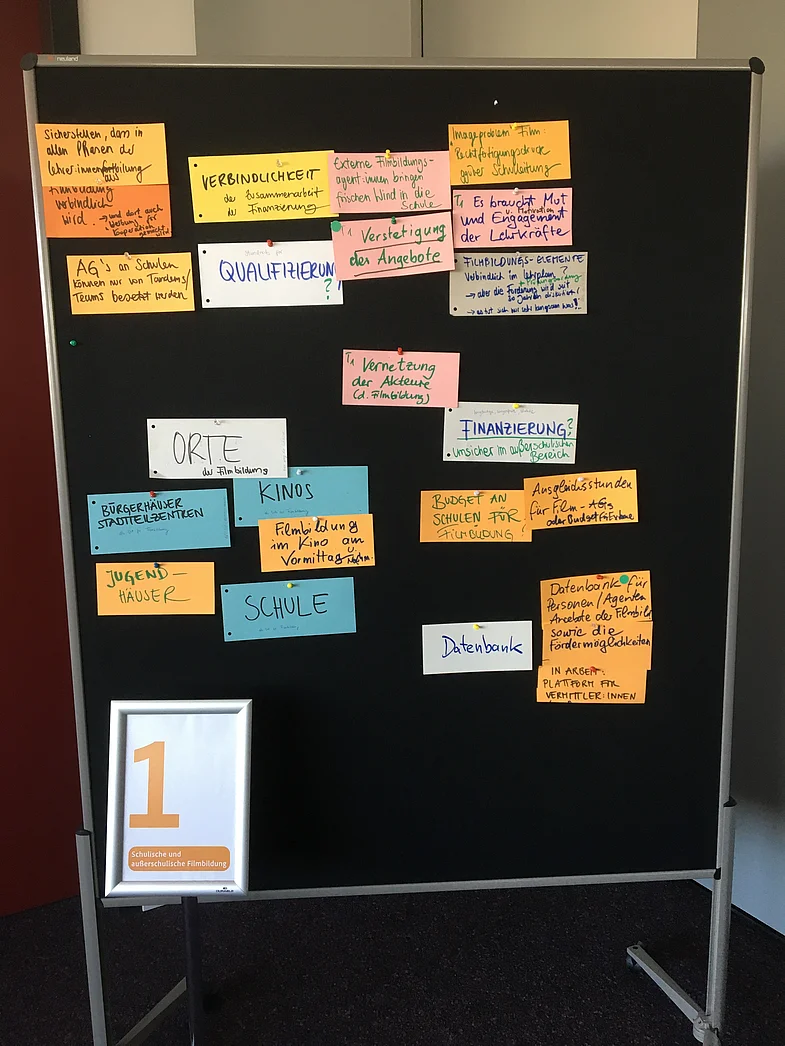 neuland
Sicherstellen, dass in
allen Phasen der
Lehrer:innenfortbildung
das
Filmbildung
verbindlich
wird.
→ und dort auch
Werbung für
Kooperation gemacht wird
VERBINDLICHKEIT
der Zusammenarbeit
der Finanzierung
Externe Filmbildungs-
agent:innen bringen
frischen Wind in die
Schule
Imageproblem Film:
Rechtfertigungsdruck
ggüber Schulleitung
T1 Es braucht Mut
u. Motivation
und Engagement
der Lehrkräfte
T1 Verstetigung
der Angebote
AG's an Schulen
können nur von Tandems/
Teams besetzt werden
QUALIFIZIERUN
?
FILMBILDUNGS-ELEMENTE
Verbindlich im Lehrplan?
→ aber die Forderung wird seit
20 Jahren diskutiert!
T1 Vernetzung
der Akteure
(d. Filmbildung)
FINANZIERUNG?
unsicher im außerschulischen
Bereich
ORTE
der Filmbildung
KINOS
BÜRGERHÄUSER
STADTTEILZENTREN
Filmbildung
im Kino am
Vormittag
BUDGET AN
SCHULEN FÜR
FILMBILDUNG!
Ausgleichsstunden
für Film-AGs
oder Budget für Externe
JUGEND-
HÄUSER
SCHULE
Datenbank
Datenbank für
Personen/Agenten
Angebote der Filmbild
sowie die
Fördermöglichkeiten
IN ARBEIT:
PLATTFORM FÜR
VERMITTLER:INNEN
1
Schulische und
außerschulische Filmbildung